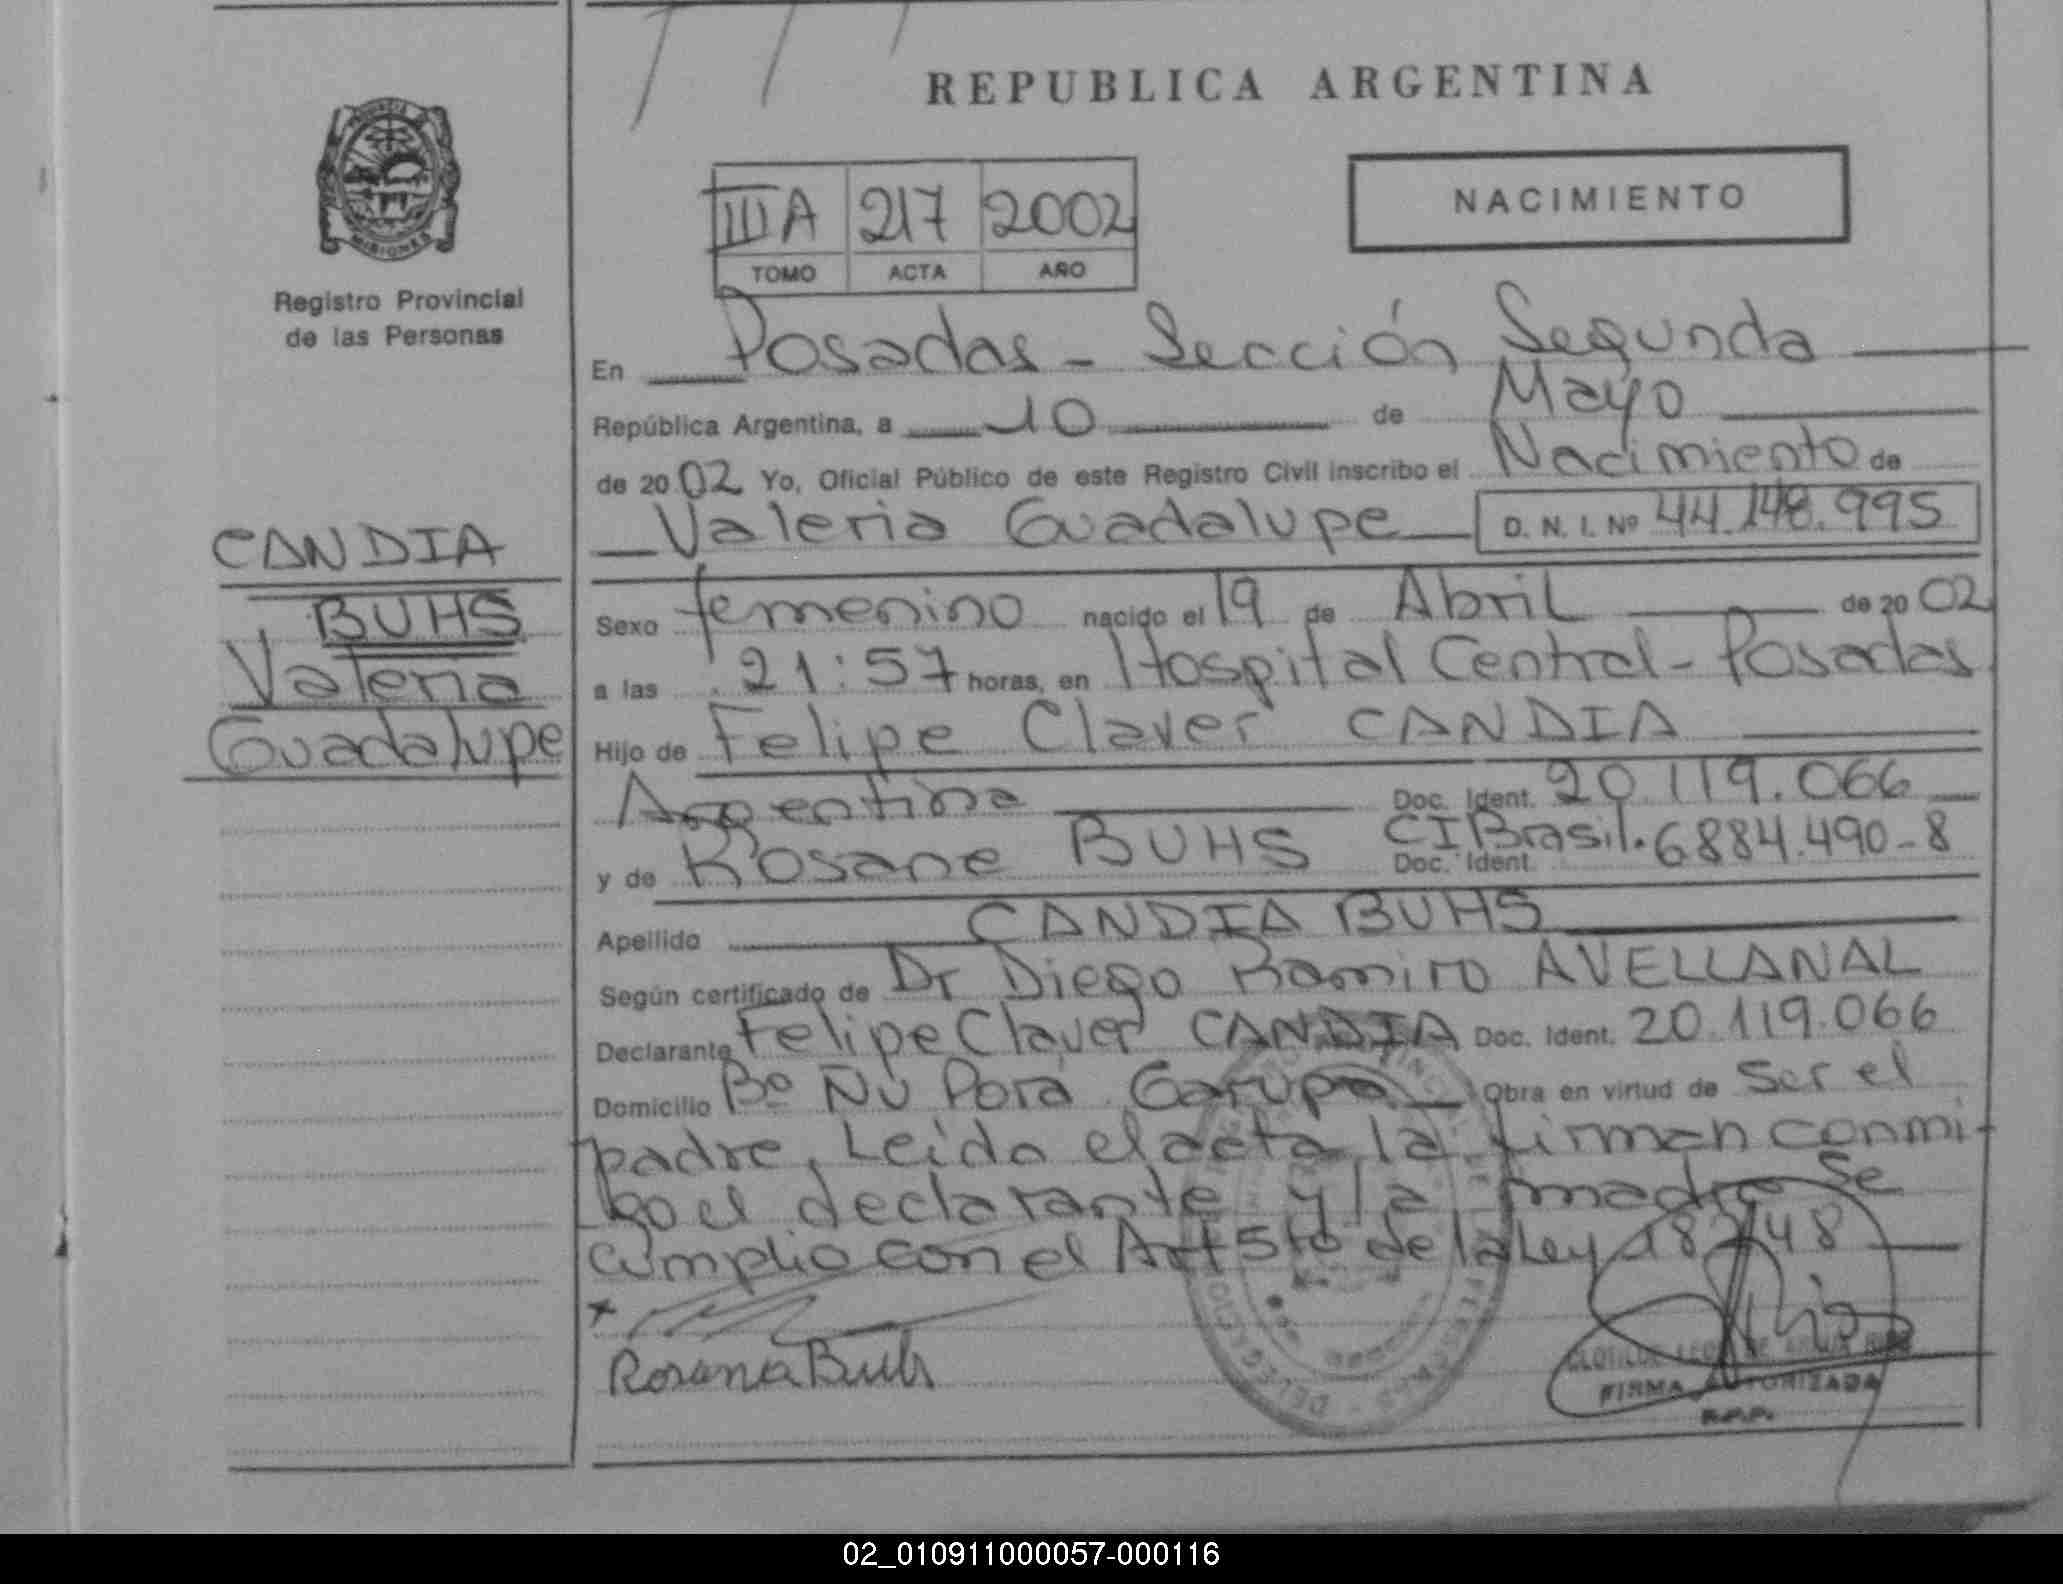 REPUBLICA ARGENTINA
PROVINCIA DE
MISIONES
Registro Provincial
de las Personas
NACIMIENTO
III A 217 2002
TOMO ACTA AÑO
En Posadas - Sección Segunda
República Argentina, a 10 de Mayo
de 2002 Yo, Oficial Público de este Registro Civil inscribo el Nacimiento de
Valeria Guadalupe D. N. I. Nº 44.148.995
CANDIA
BUHS
Valeria
Guadalupe
Sexo femenino nacido el 19 de Abril de 2002
a las 21:57 horas, en Hospital Central - Posadas
Hijo de Felipe Claver CANDIA
Argentina Doc. Ident. 20.119.066
y de Rosane BUHS Doc. Ident. CI Brasil. 6884.490-8
Apellido CANDIA BUHS
Según certificado de Dr Diego Ramiro AVELLANAL
Declarante Felipe Claver CANDIA Doc. Ident. 20.119.066
Domicilio Bº Ñu Porá Garupa Obra en virtud de Ser el
padre. Leida el acta la firman conmi-
go el declarante y la madre Se
cumplio con el Art 5to de la Ley 18248
Rosana Buhs
FIRMA AUTORIZADA
R.P.P.
02_010911000057-000116